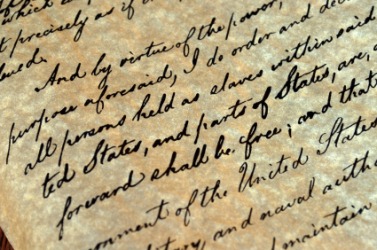 which
t precisely as if
And by virtue of the power,
purpose aforesaid, I do order and dec
all persons held as slaves within said
ted States, and parts of States, are, a
forward shall be free; and that
ernment of the United States
and naval autho
maintain